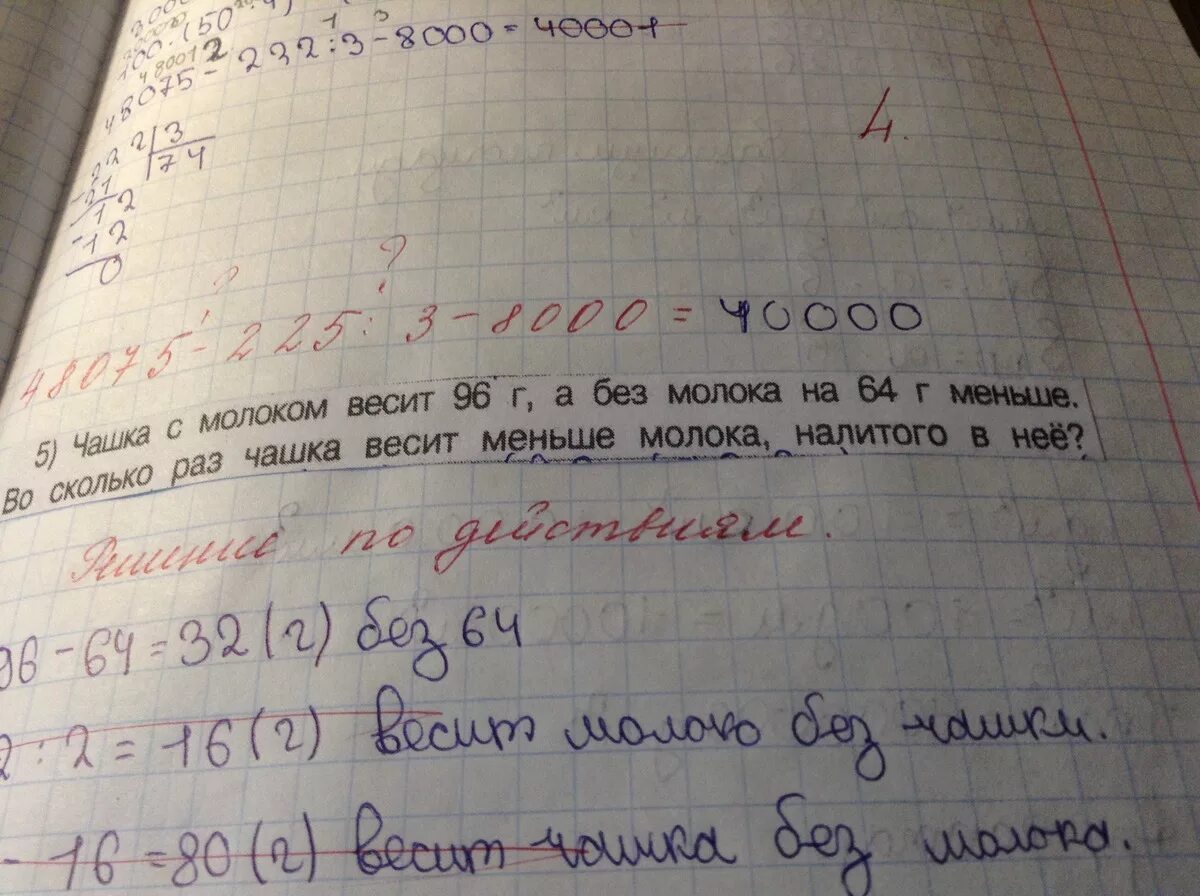 48012
48075 - 232 : 3 - 8000 = 40001
1 3
4.
222 | 3
21 | 74
12
12
0
? ?
48075 - 225 : 3 - 8000 = 40000
5) Чашка с молоком весит 96 г, а без молока на 64 г меньше.
Во сколько раз чашка весит меньше молока, налитого в неё?
Решение по действиям.
96 - 64 = 32 (г) без 64
2 : 2 = 16 (г) весит молоко без чашки.
- 16 = 80 (г) весит чашка без молока.